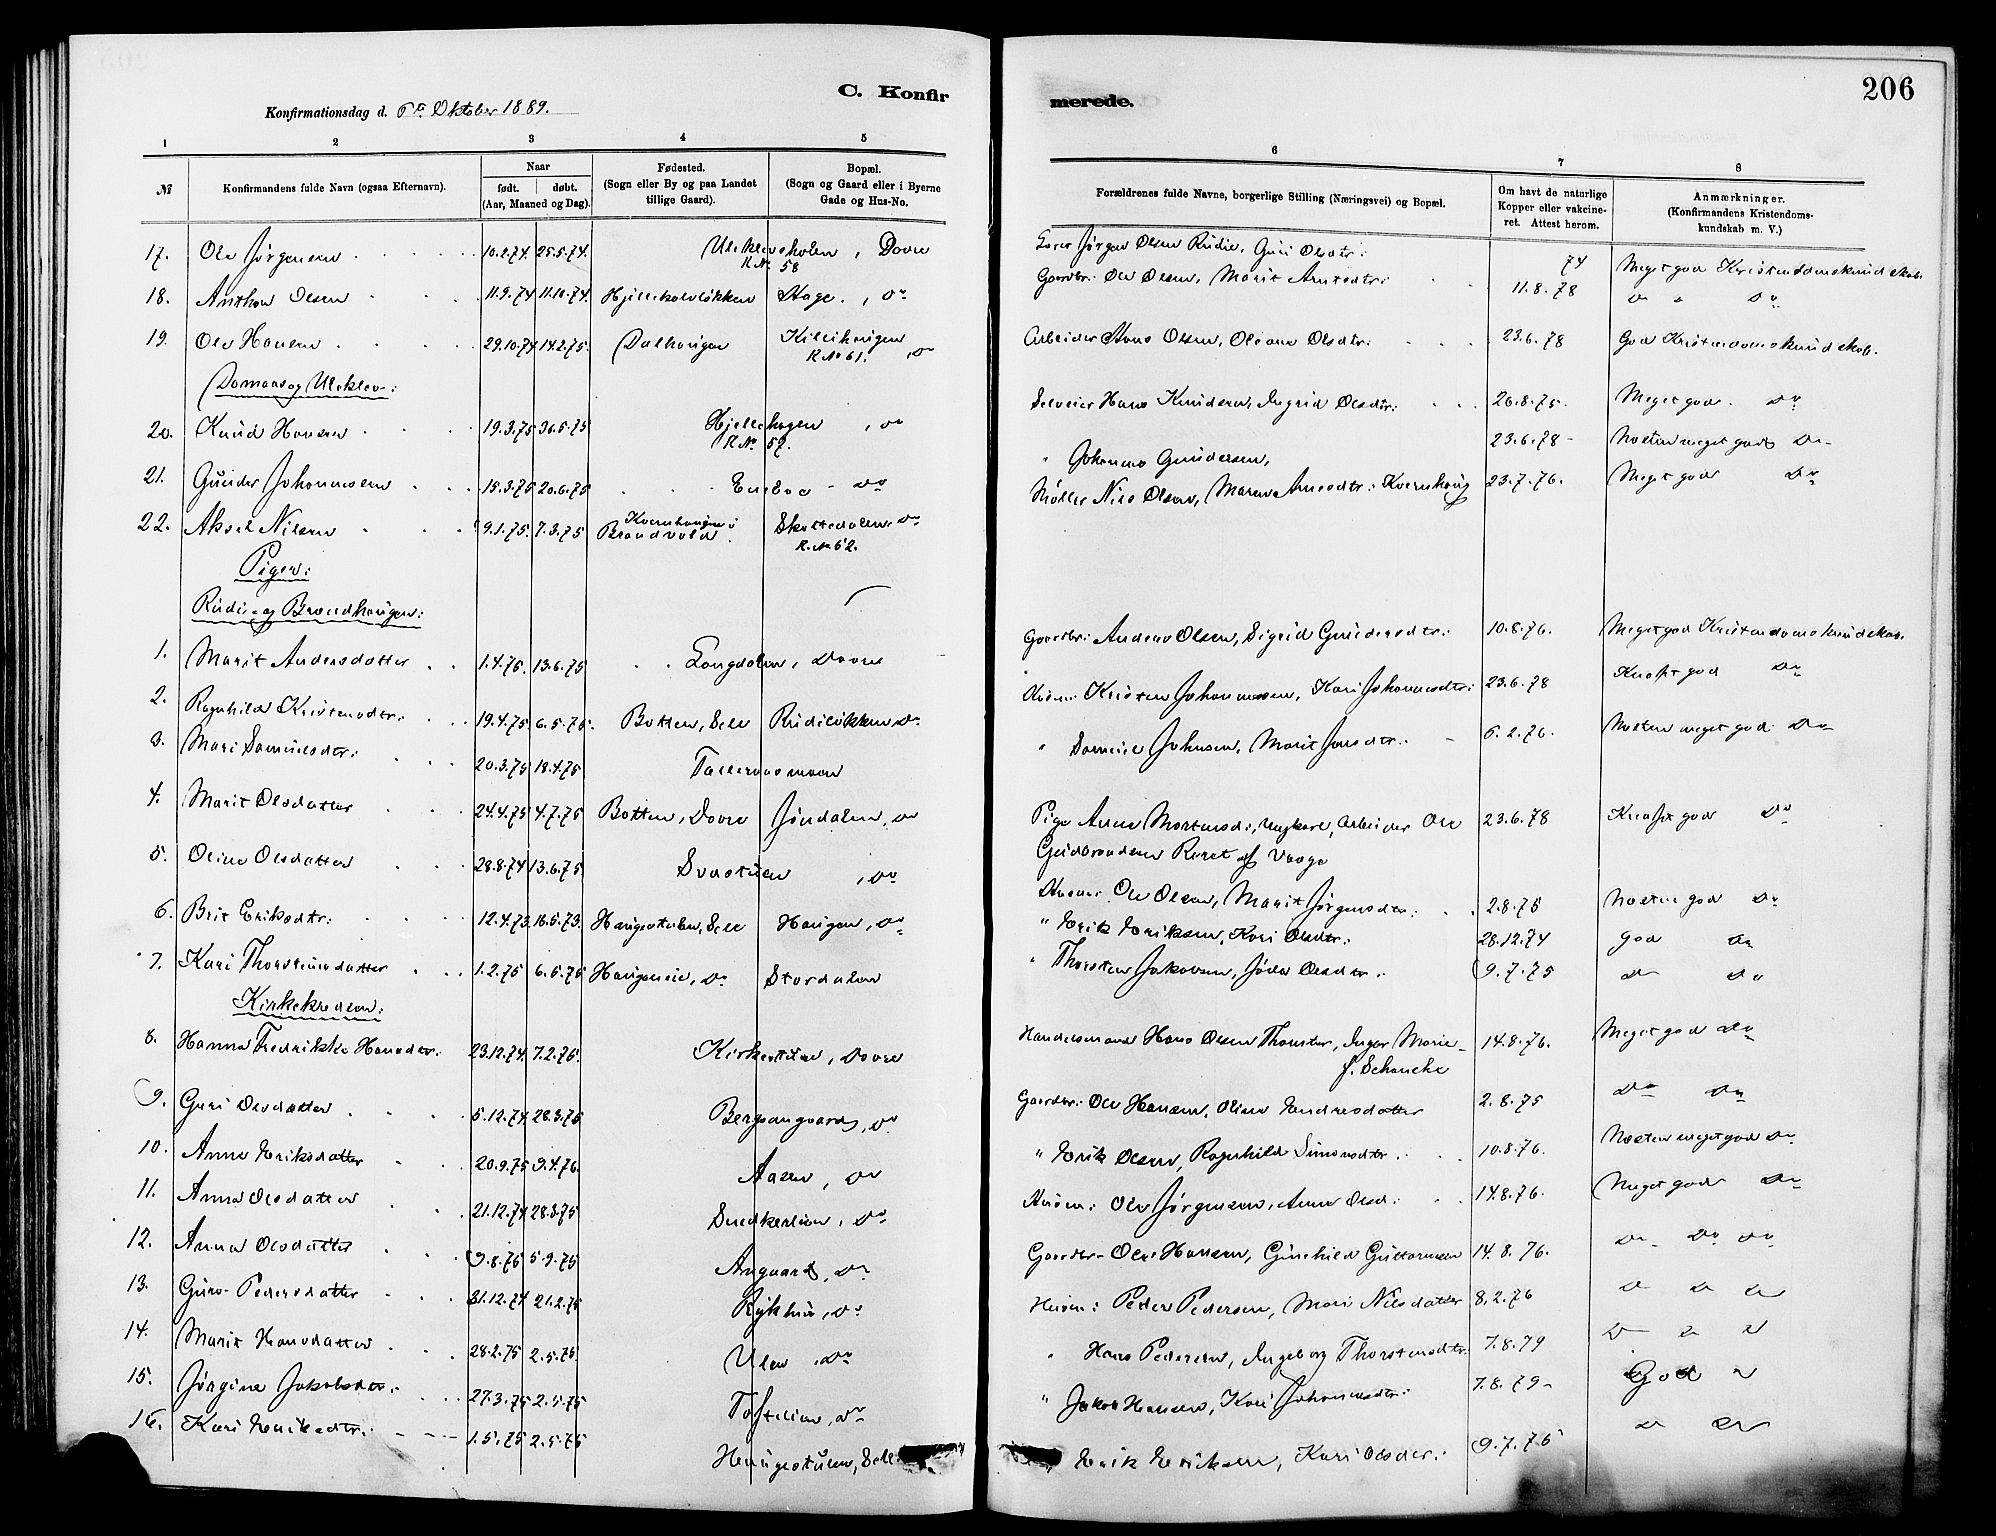 206
C. Konfirmerede.
Konfirmationsdag d. 6te Oktober 1889.
1 2 3 4 5 6 7 8
№ Konfirmandens fulde Navn (ogsaa Efternavn). Naar født. døbt. (Aar, Maaned og Dag). Fødested. (Sogn eller By og paa Landet tillige Gaard). Bopæl. (Sogn og Gaard eller i Byerne Gade og Hus-No. Forældrenes fulde Navne, borgerlige Stilling (Næringsvei) og Bopæl. Om havt de naturlige Kopper eller vakcineret. Attest herom. Anmærkninger. (Konfirmandens Kristendomskundskab m. V.)
17. Ole Jørgensen 10.2.74. 25.5.74. Uleklevsholen, Dovre R.No. 58 Jørgen Olsen Rudie, Guri Olsdtr: 74 Meget god Kristendomskundskab.
18. Anthon Olsen 11.9.74 11.10.74. Hjellekolsløkken Hage, Do Gaardbr: Ole Olsen, Marit Arnesdtr: 11.8.78 Do " Do
19. Ole Hansen 29.10.74 14.2.75. Dalhaugen Killihaugen R.No 61., Do Arbeider Hans Olsen, Oliane Olsdtr: 23.6.78 God Kristendomskundskab.
Domaas og Uleklev:
20. Knud Hansen 19.3.75 30.5.75 Hjellehagen, Do R.No. 57. Selveier Hans Knudsen, Ingrid Olsdtr: 26.8.75. Meget god. Do
21. Gunder Johannesen 15.3.75 20.6.75 Enebo - Do " Johannes Gundersen, 23.6.78- Næsten meget god Do-
22. Aksel Nilsen 9.1.75. 7.3.75 Kvernhaugen i Brandvold Skottedalen, Do R.No 62. Møller Nils Olsen, Maren Arnesdtr: Kvernhaug 23.7.76. Meget god Do
Piger:
Rudi- og Brændhaugen:
1. Marit Andersdatter 1.4.75. 13.6.75 Langdalen, Dovre Gaardbr: Anders Olsen, Sigrid Gundersdtr: 10.8.76. Meget god Kristendomskundskab.
2. Ragnhild Kristensdtr: 19.4.75 6.5.75. Botten, Sell Rudiløkken, Do Husm: Kristen Johannessen, Kari Johannesdtr: 23.6.78 Knapt god Do
3. Mari Samuelsdtr: 20.3.75 18.4.75 Talleraasmoen " Samuel Johnsen, Marit Jonsdtr: - 6.2.76. Næsten meget god. Do
4. Marit Olsdatter 24.4.75 4.7.75 Botten, Dovre Jøndalen, Do Pige Anne Mortensd:, Ungkarl, Arbeider Ole Gudbrandsen Reret af Vaage 23.6.78 Knapt god Do
5. Oline Olsdatter 28.8.74 13.6.75. Svastuen, Do Husm: Ole Olsen, Marit Jørgensdtr: 2.8.75 Næsten god Do
6. Brit Eriksdtr: 12.4.73. 16.5.73. Haugestulen, Sell Haugen, Do " Erik Eriksen, Kari Olsdtr: 28.12.74 God Do
7. Kari Thorsteinsdatter 1.2.75 6.5.75 Haugeneie, Do Stordalen " Thorsten Jakobsen, Olsdtr: 9.7.75 Do Do
Kirkekredsen:
8. Hanna Fredrikke Hansdtr: 23.12.74. 7.2.75. Kirkestuen, Dovre Handelsmand Hans Olsen Thonstar, Inger Marie f. Schancke 14.8.76. Meget god Do
9. Guri Olsdatter 5.12.74 28.3.75 Bergsengaard, Do Gaardbr: Ole Hansen, Oline Endresdatter 2.8.75 Do Do
10. Anne Eriksdatter 20.9.75 9.4.76. Aasen, Do " Erik Olsen, Ragnhild Simensdtr 10.8.76. Næsten meget god Do
11. Anna Olsdatter 21.12.74 28.3.75 Snedkerlien, Do Husm: Ole Jørgensen, Anne Olsd: 14.8.76. Meget god Do
12. Anna Olsdatter 9.8.75 5.9.75 Angaard, Do Gaardbr- Ole Hansen, Gunhild Guttormsen 14.8.76. Do Do Do
13. Guro Pedersdatter 31.12.74 21.2.75 Rykhus, Do Husm: Peder Pedersen, Mari Nilsdatter 8.2.76 Do Do Do
14. Marit Hansdatter 28.2.75 2.5.75. Ulen, Do " Hans Pedersen, Ingeborg Thorstensdtr: 7.8.79 Do " "
15. Jørgine Jakobsdtr: 27.3.75 2.5.75 Toftelien, Do " Jakob Hansen, Kari Johannesdtr: 7.8.79- God "
16. Kari Eriksdtr: 1.5.75 2.5.75 Haugestulen, Sell " Erik Eriksen, Kari Olsdtr: 9.7.75 " Do